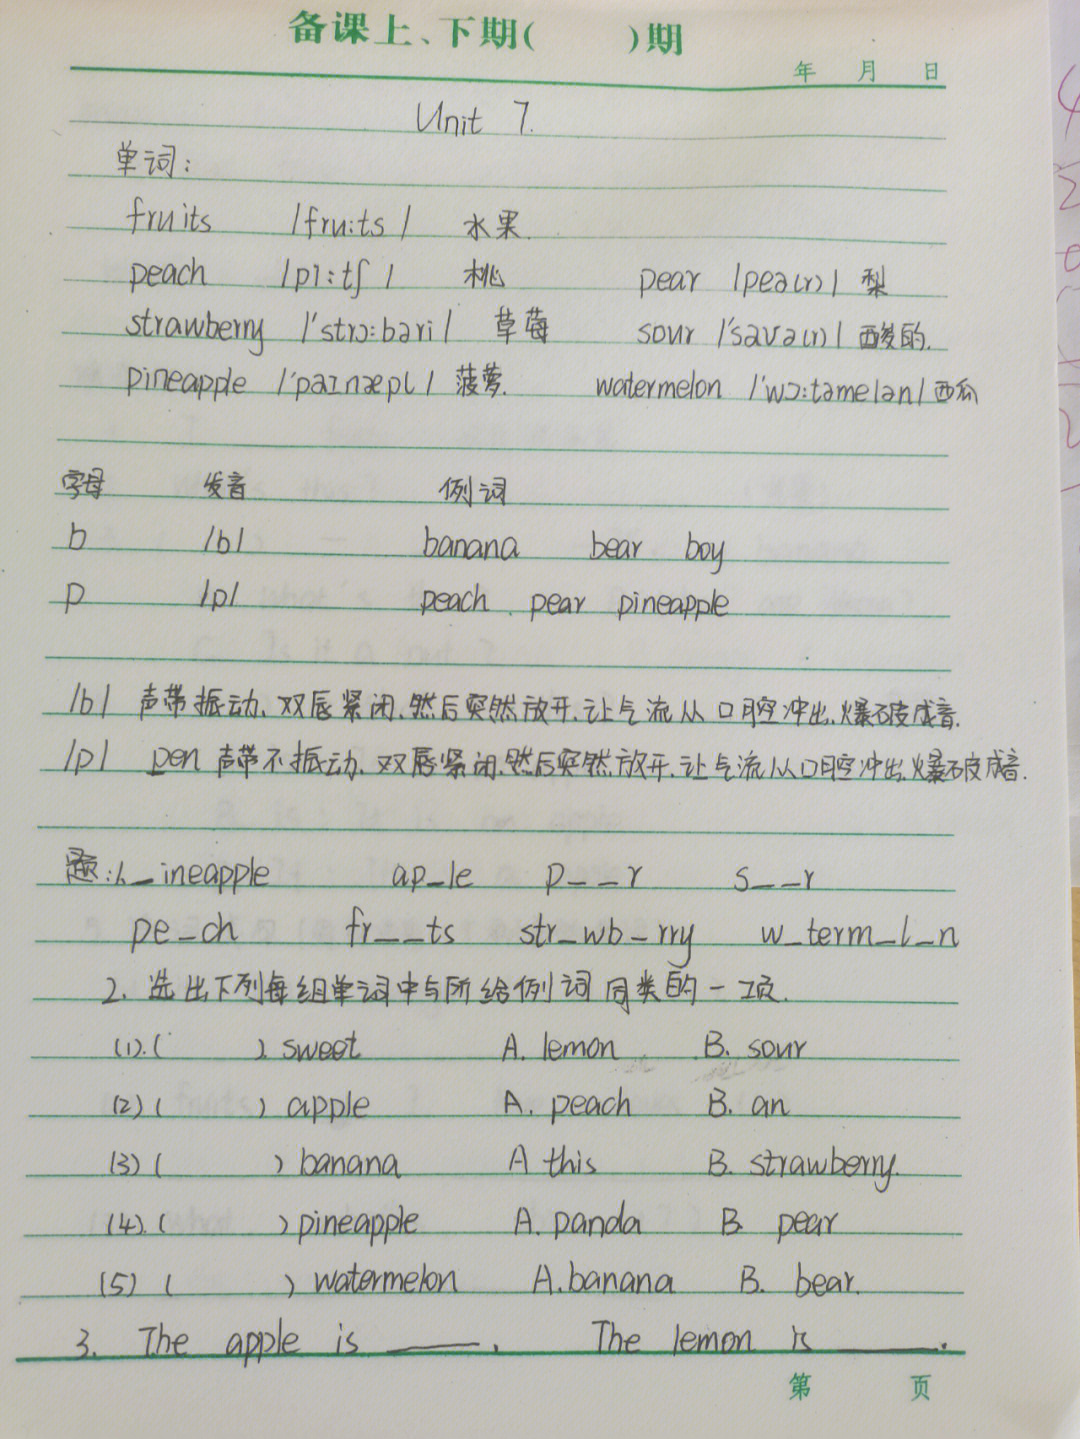 备课上、下期( )期
年 月 日
Unit 7.
单词:
fruits /fru:ts/ 水果.
peach /pɪ:tʃ/ 桃 pear /peə(r)/ 梨
strawberry /'strɔ:bəri/ 草莓 sour /'saʊə(r)/ 酸的.
pineapple /'paɪnæpl/ 菠萝. watermelon /'wɔ:təmelən/ 西瓜
字母 发音 例词
b /b/ banana bear boy
p /p/ peach pear pineapple
/b/ 声带振动、双唇紧闭、然后突然放开、让气流从口腔冲出、爆破成音.
/p/ pen 声带不振动、双唇紧闭、然后突然放开、让气流从口腔冲出、爆破成音.
题:1、_ineapple ap_le p__r s__r
pe_ch fr__ts str_wb_rry w_term_l_n
2、选出下列每组单词中与所给例词同类的一项.
(1).( ). sweet A. lemon B. sour
(2) ( ) apple A. peach B. an
(3) ( ) banana A this B. strawberry.
(4).( ) pineapple A. panda B. pear
(5) ( ) watermelon A. banana B. bear.
3. The apple is ____. The lemon is ____.
第 页